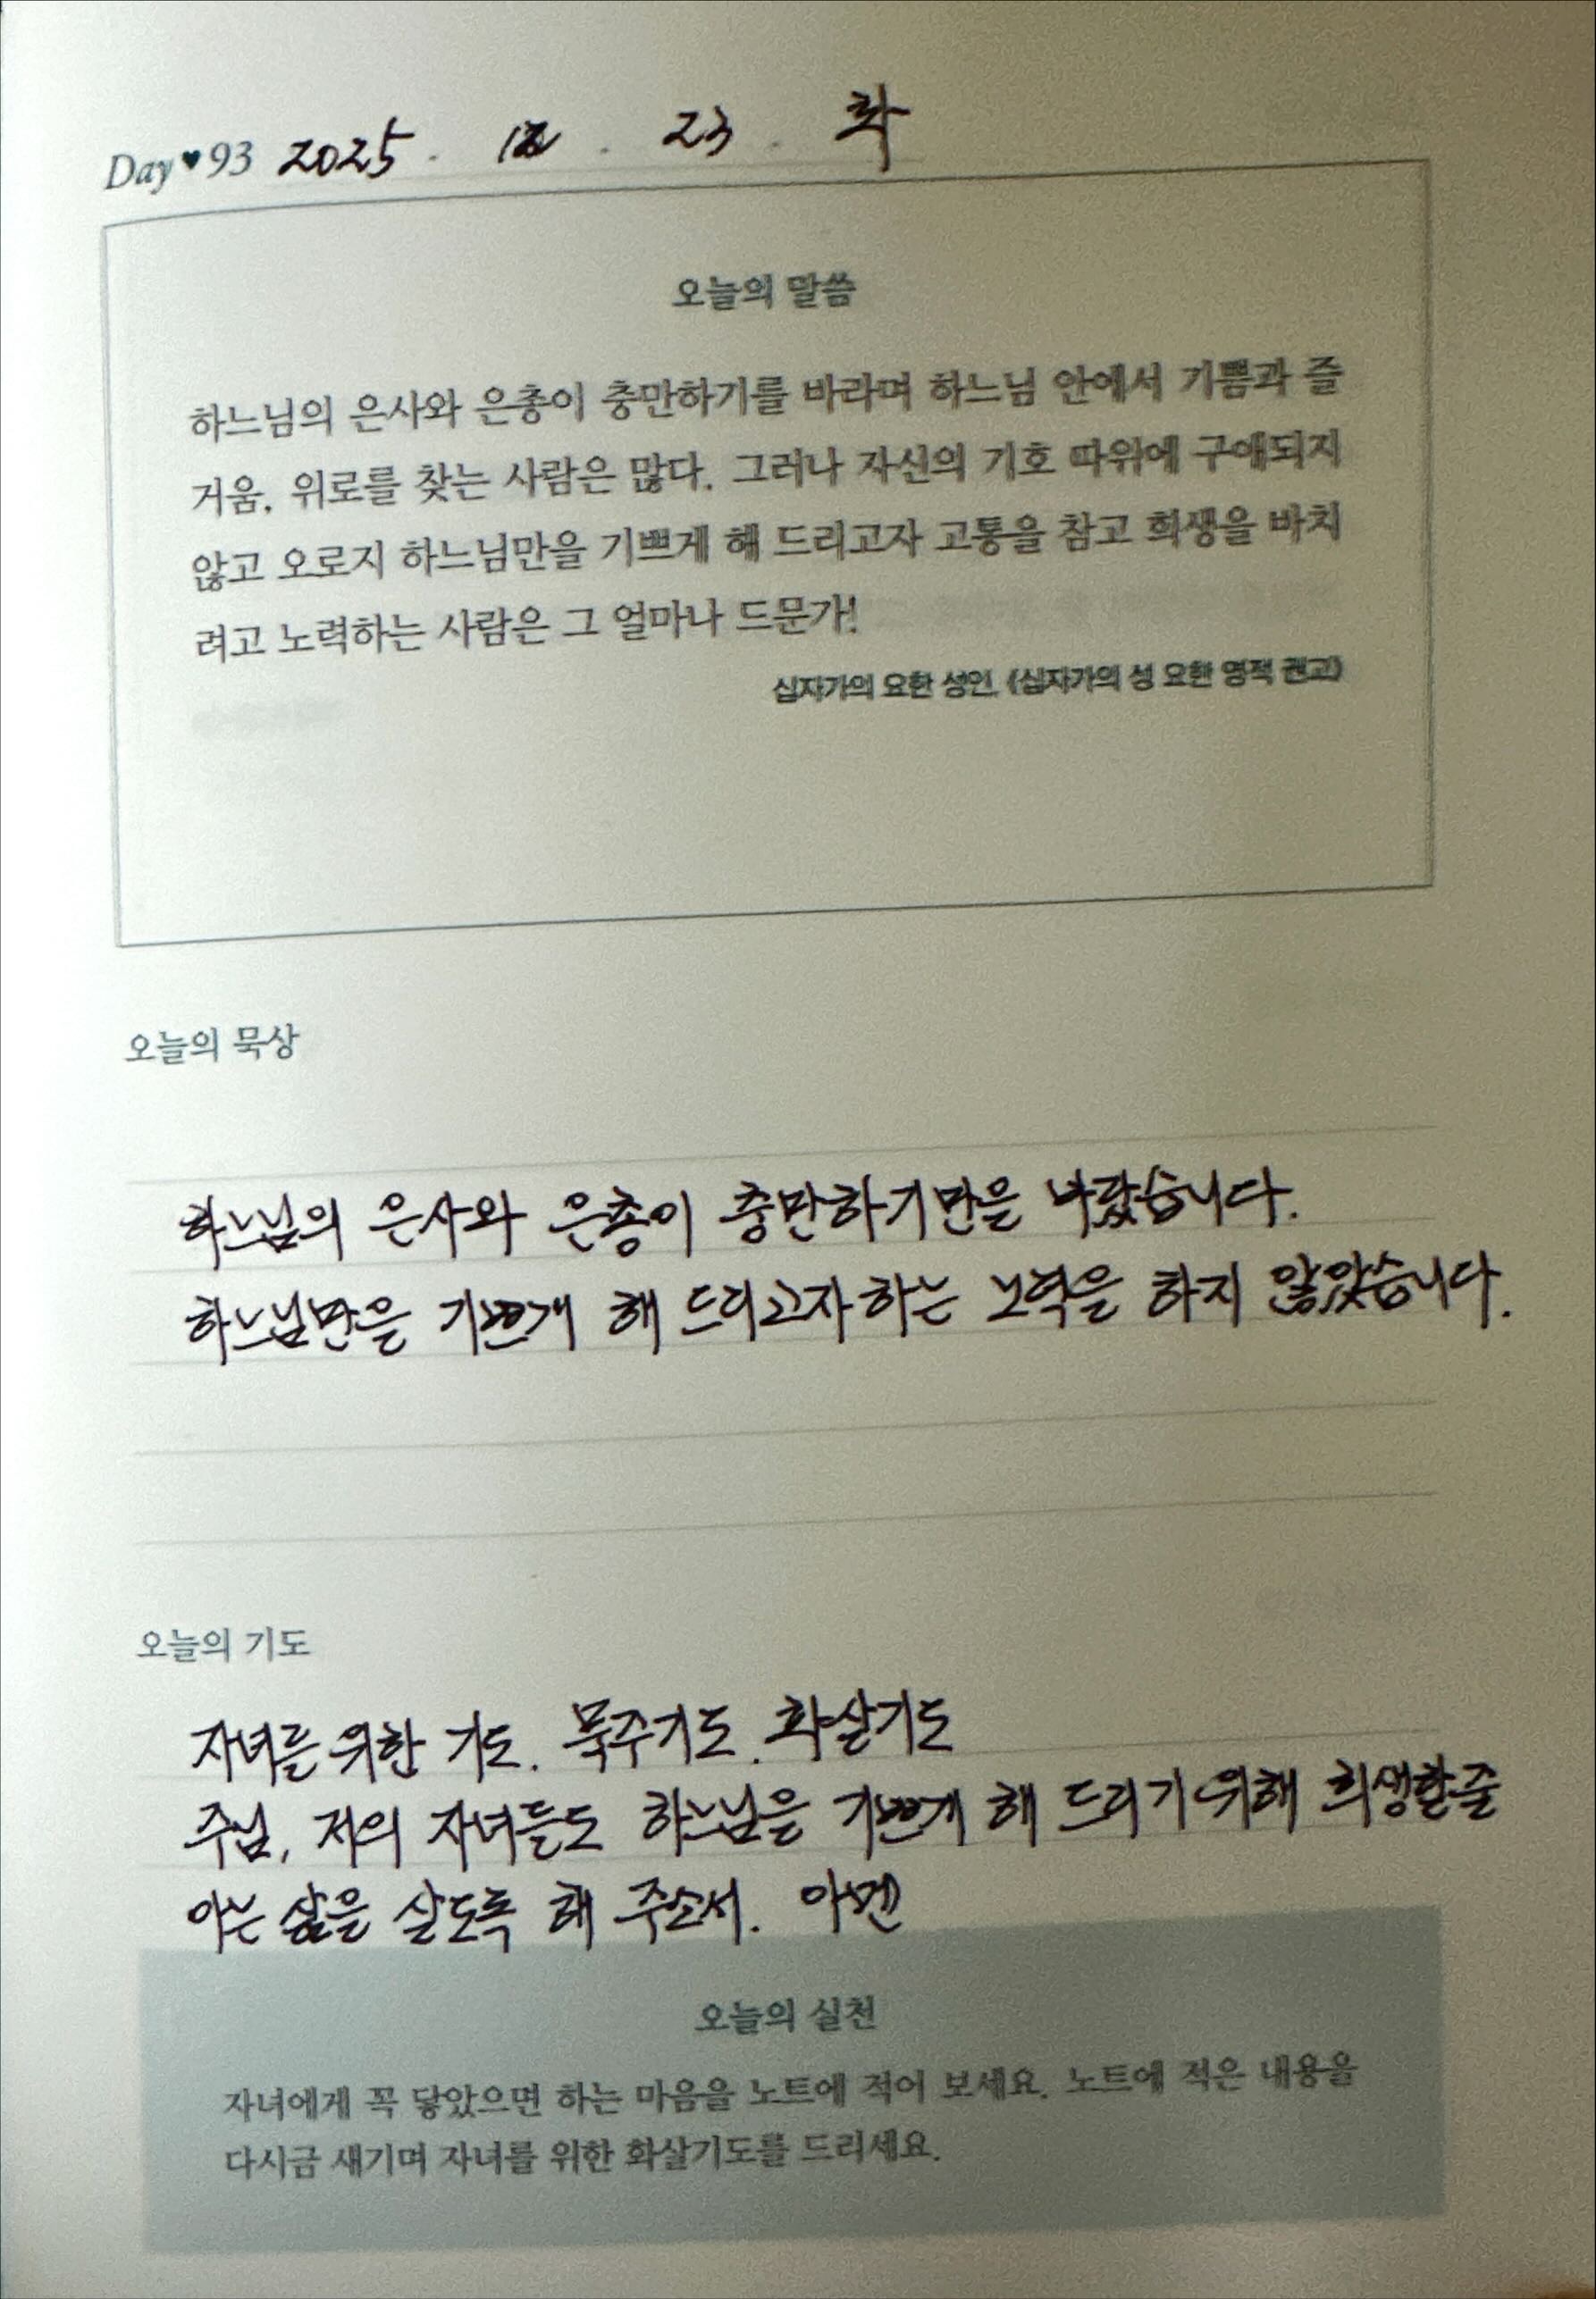 Day♥93 2025. 12. 23. 화
오늘의 말씀
하느님의 은사와 은총이 충만하기를 바라며 하느님 안에서 기쁨과 즐
거움, 위로를 찾는 사람은 많다. 그러나 자신의 기호 따위에 구애되지
않고 오로지 하느님만을 기쁘게 해 드리고자 고통을 참고 희생을 바치
려고 노력하는 사람은 그 얼마나 드문가!
십자가의 요한 성인, 《십자가의 성 요한 영적 권고》
오늘의 묵상
하느님의 은사와 은총이 충만하기만을 바랐습니다.
하느님만을 기쁘게 해 드리고자하는 노력을 하지 않았습니다.
오늘의 기도
자녀를 위한 기도. 묵주기도. 화살기도
주님, 저의 자녀들도 하느님을 기쁘게 해 드리기 위해 희생할줄
아는 삶을 살도록 해 주소서. 아멘
오늘의 실천
자녀에게 꼭 닿았으면 하는 마음을 노트에 적어 보세요. 노트에 적은 내용을
다시금 새기며 자녀를 위한 화살기도를 드리세요.